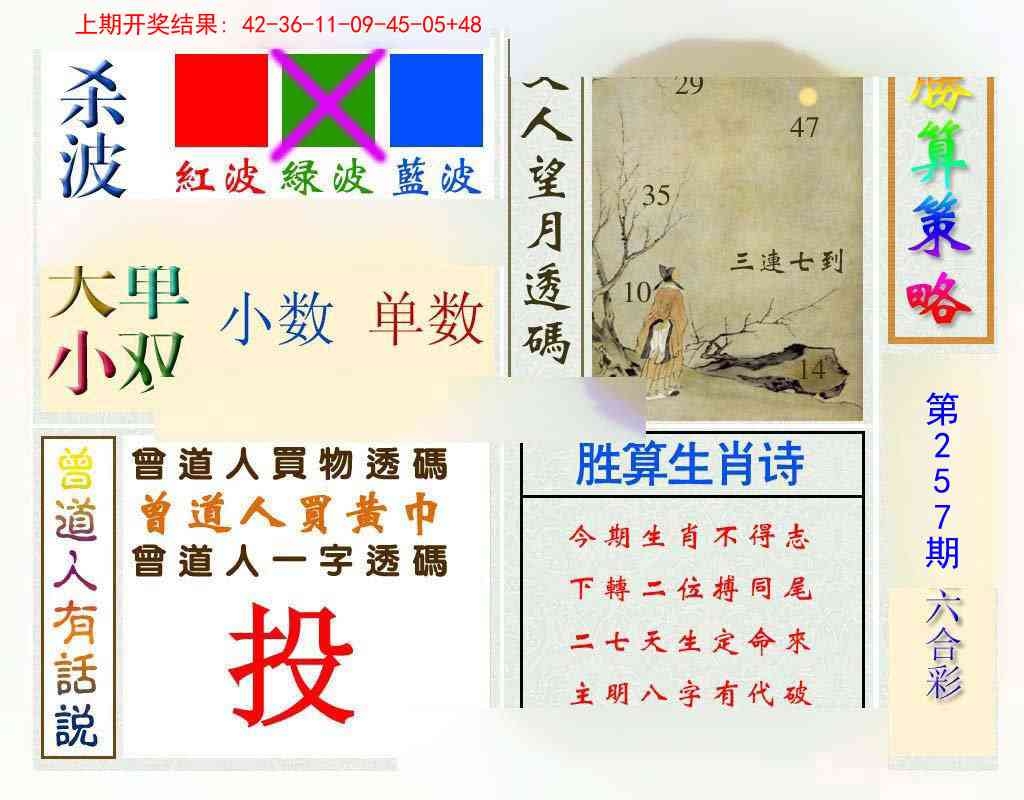 上期开奖结果: 42-36-11-09-45-05+48
杀波
紅波 綠波 藍波
大小
单双
小数 单数
人人望月透碼
29
47
35
三連七到
10
14
勝算策略
第257期
六合彩
曾道人有話説
曾道人買物透碼
曾道人買黃巾
曾道人一字透碼
投
胜算生肖诗
今期生肖不得志
下轉二位搏同尾
二七天生定命來
主明八字有代破